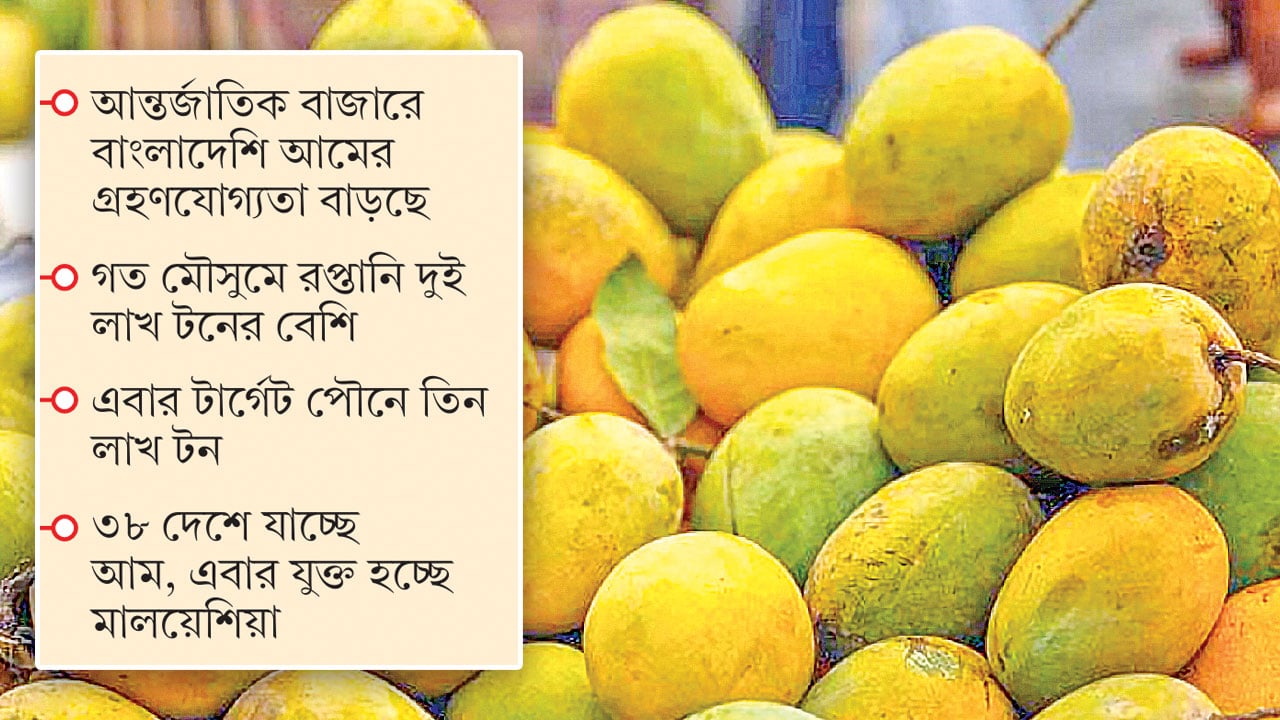 আন্তর্জাতিক বাজারে
বাংলাদেশি আমের
গ্রহণযোগ্যতা বাড়ছে
গত মৌসুমে রপ্তানি দুই
লাখ টনের বেশি
এবার টার্গেট পৌনে তিন
লাখ টন
৩৮ দেশে যাচ্ছে
আম, এবার যুক্ত হচ্ছে
মালয়েশিয়া